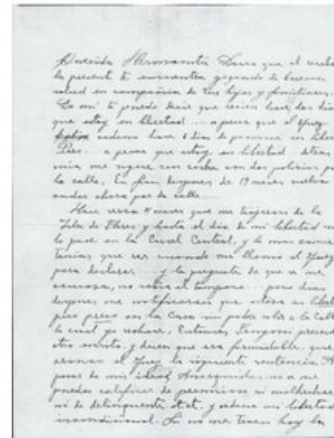 Querida Hermanita deseo que al recibo
la presente te encuentres gozando de buena
salud en compañia de tus hijos y familiares.
De mi te puedo decir que recien hace dos dias
que estoy en libertad ... a pesar que el Juez
ordeno hace 6 dias de ponerme en Liber
a pesar que estoy en libertad detras
mio me sigue un coche con dos policias por
la calle, En fin despues de 19 meses vuelvo
andar ahora por la calle ...
Hace cerca 4 meses que me trajeron de la
Isla de Flores y hasta el dia de mi libertad
la pase en la Carcel Central, y lo mas
que ser cuando me llamo el Juez
para declarar ... y la pregunta de que se me
acusaba, no sabia el tampoco. pocos dias
despues me notificaron que estaba en liber
pero preso en la Casa sin poder salir a la Calle
lo cual yo rechace, Entonces Tempone presento
otro escrito, y dicen que era formidable, que
el Juez la siguiente sentencia. "A
pesar de mis ideas no se me
puede calificar de pernicioso ni malhechor
ni de delincuente etc. y ordena mi libertad
incondicional. Si no me traen hoy la